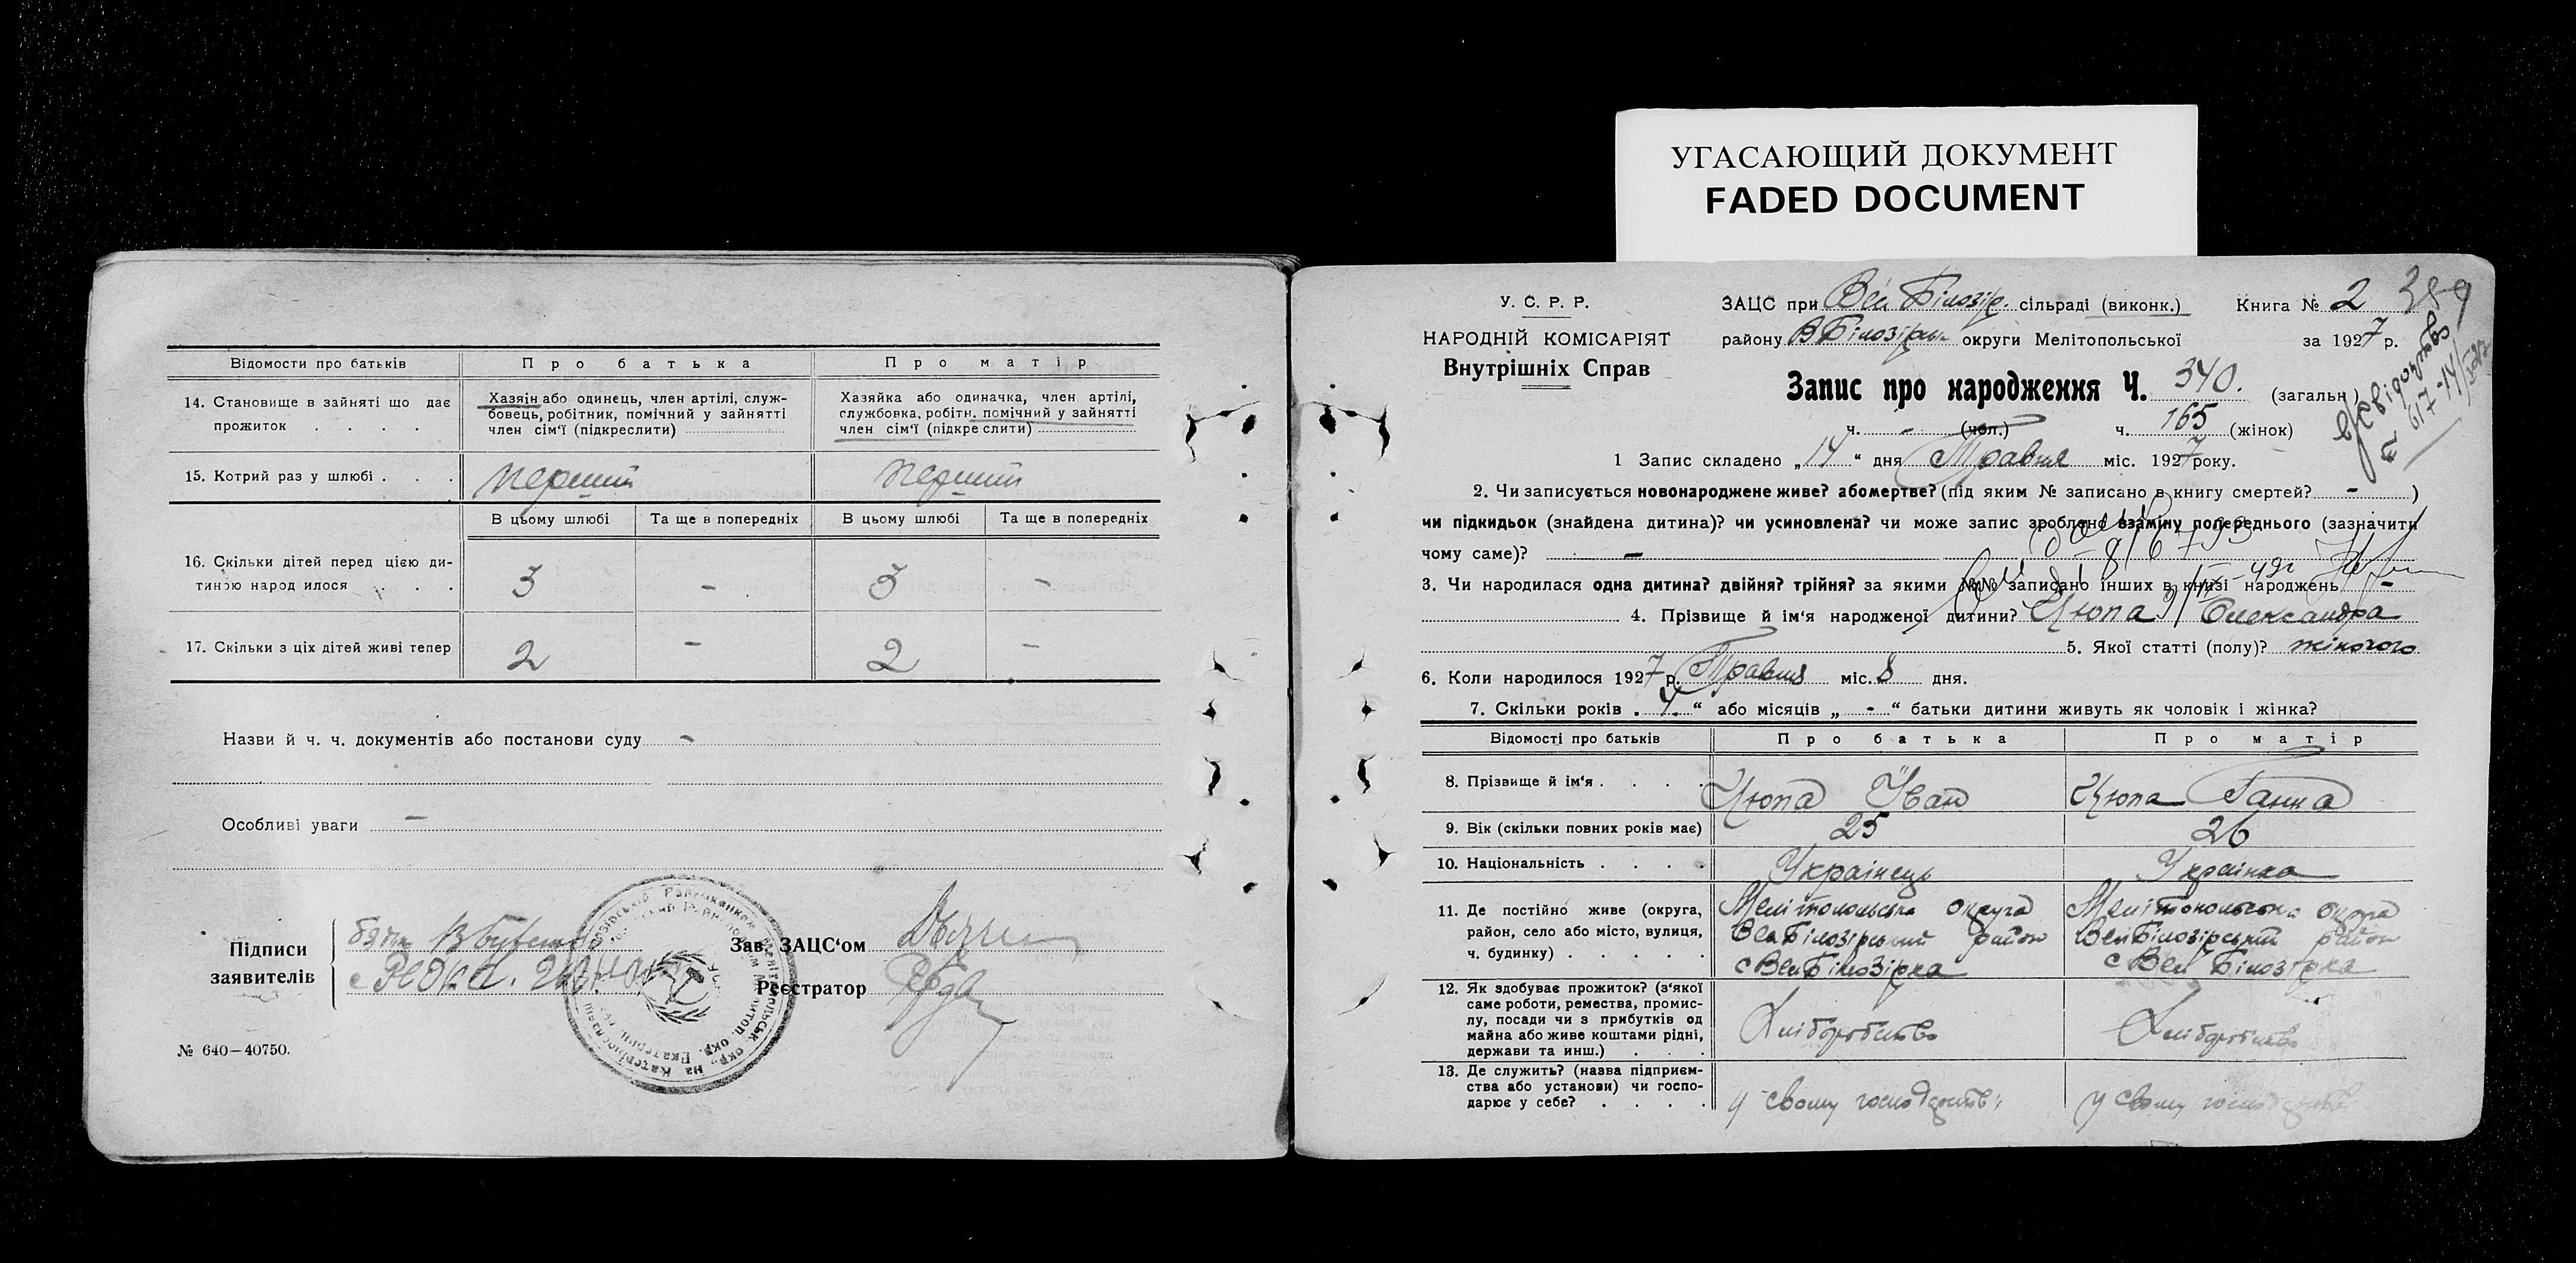 УГАСАЮЩИЙ ДОКУМЕНТ
FADED DOCUMENT
Відомости про батьків
Про батька
Про матір
14. Становище в зайняті що дає прожиток . . . .
Хазяїн або одинець, член артілі, служ-
бовець, робітник, помічний у зайнятті
член сім'ї (підкреслити)
Хазяйка або одиначка, член артілі,
службовка, робітн. помічний у зайнятті
член сім'ї (підкреслити)
15. Котрий раз у шлюбі . . .
перший
перший
В цьому шлюбі
Та ще в попередніх
В цьому шлюбі
Та ще в попередніх
16. Скільки дітей перед цією ди-
тиною народилося . . .
3
-
3
-
17. Скільки з ціх дітей живі тепер
2
-
2
-
Назви й ч. ч. документів або постанови суду -
Особливі уваги -
Підписи
заявителів
Зав. ЗАЦС'ом
Реєстратор
№ 640—40750.
У. С. Р. Р.
НАРОДНІЙ КОМІСАРІЯТ
Внутрішніх Справ
ЗАЦС при Вел Білозір. сільраді (виконк.)
Книга № 2
389
району В Білозірськ. округи Мелітопольської
за 1927 р.
Запис про народження Ч. 340. (загальн.)
ч. - (чол.) ч. 165 (жінок)
1 Запис складено „14“ дня Травня міс. 1927 року.
2. Чи записується новонароджене живе? або мертве? (під яким № записано в книгу смертей? - )
чи підкидьок (знайдена дитина)? чи усиновлена? чи може запис зроблено взаміну попереднього (зазначити
чому саме)? -
3. Чи народилася одна дитина? двійня? трійня? за якими №№ записано інших в книзі народжень -
4. Прізвище й ім'я народженої дитини? Цюпа Олександра
5. Якої статті (полу)? жіночого
6. Коли народилося 1927 р. Травня міс. 8 дня.
7. Скільки років „ 4 “ або місяців „ - “ батьки дитини живуть як чоловік і жінка?
Відомості про батьків
Про батька
Про матір
8. Прізвище й ім'я . . . .
Цюпа Іван
Цюпа Ганна
9. Вік (скільки повних років має)
25
26
10. Національність . . . .
Українець
Українка
11. Де постійно живе (округа,
район, село або місто, вулиця,
ч. будинку) . . . . .
Мелітопольська округа
Вел Білозірський район
с Вел Білозірка
Мелітопольськ. округа
Вел Білозірський район
с Вел Білозірка
12. Як здобуває прожиток? (з'якої
саме роботи, ремества, промис-
лу, посади чи з прибутків од
майна або живе коштами рідні,
держави та инш.) . . .
Хліборобство
Хліборобство
13. Де служить? (назва підприєм-
ства або установи) чи госпо-
дарює у себе? . . . .
у свому господарстві
у свому господарстві